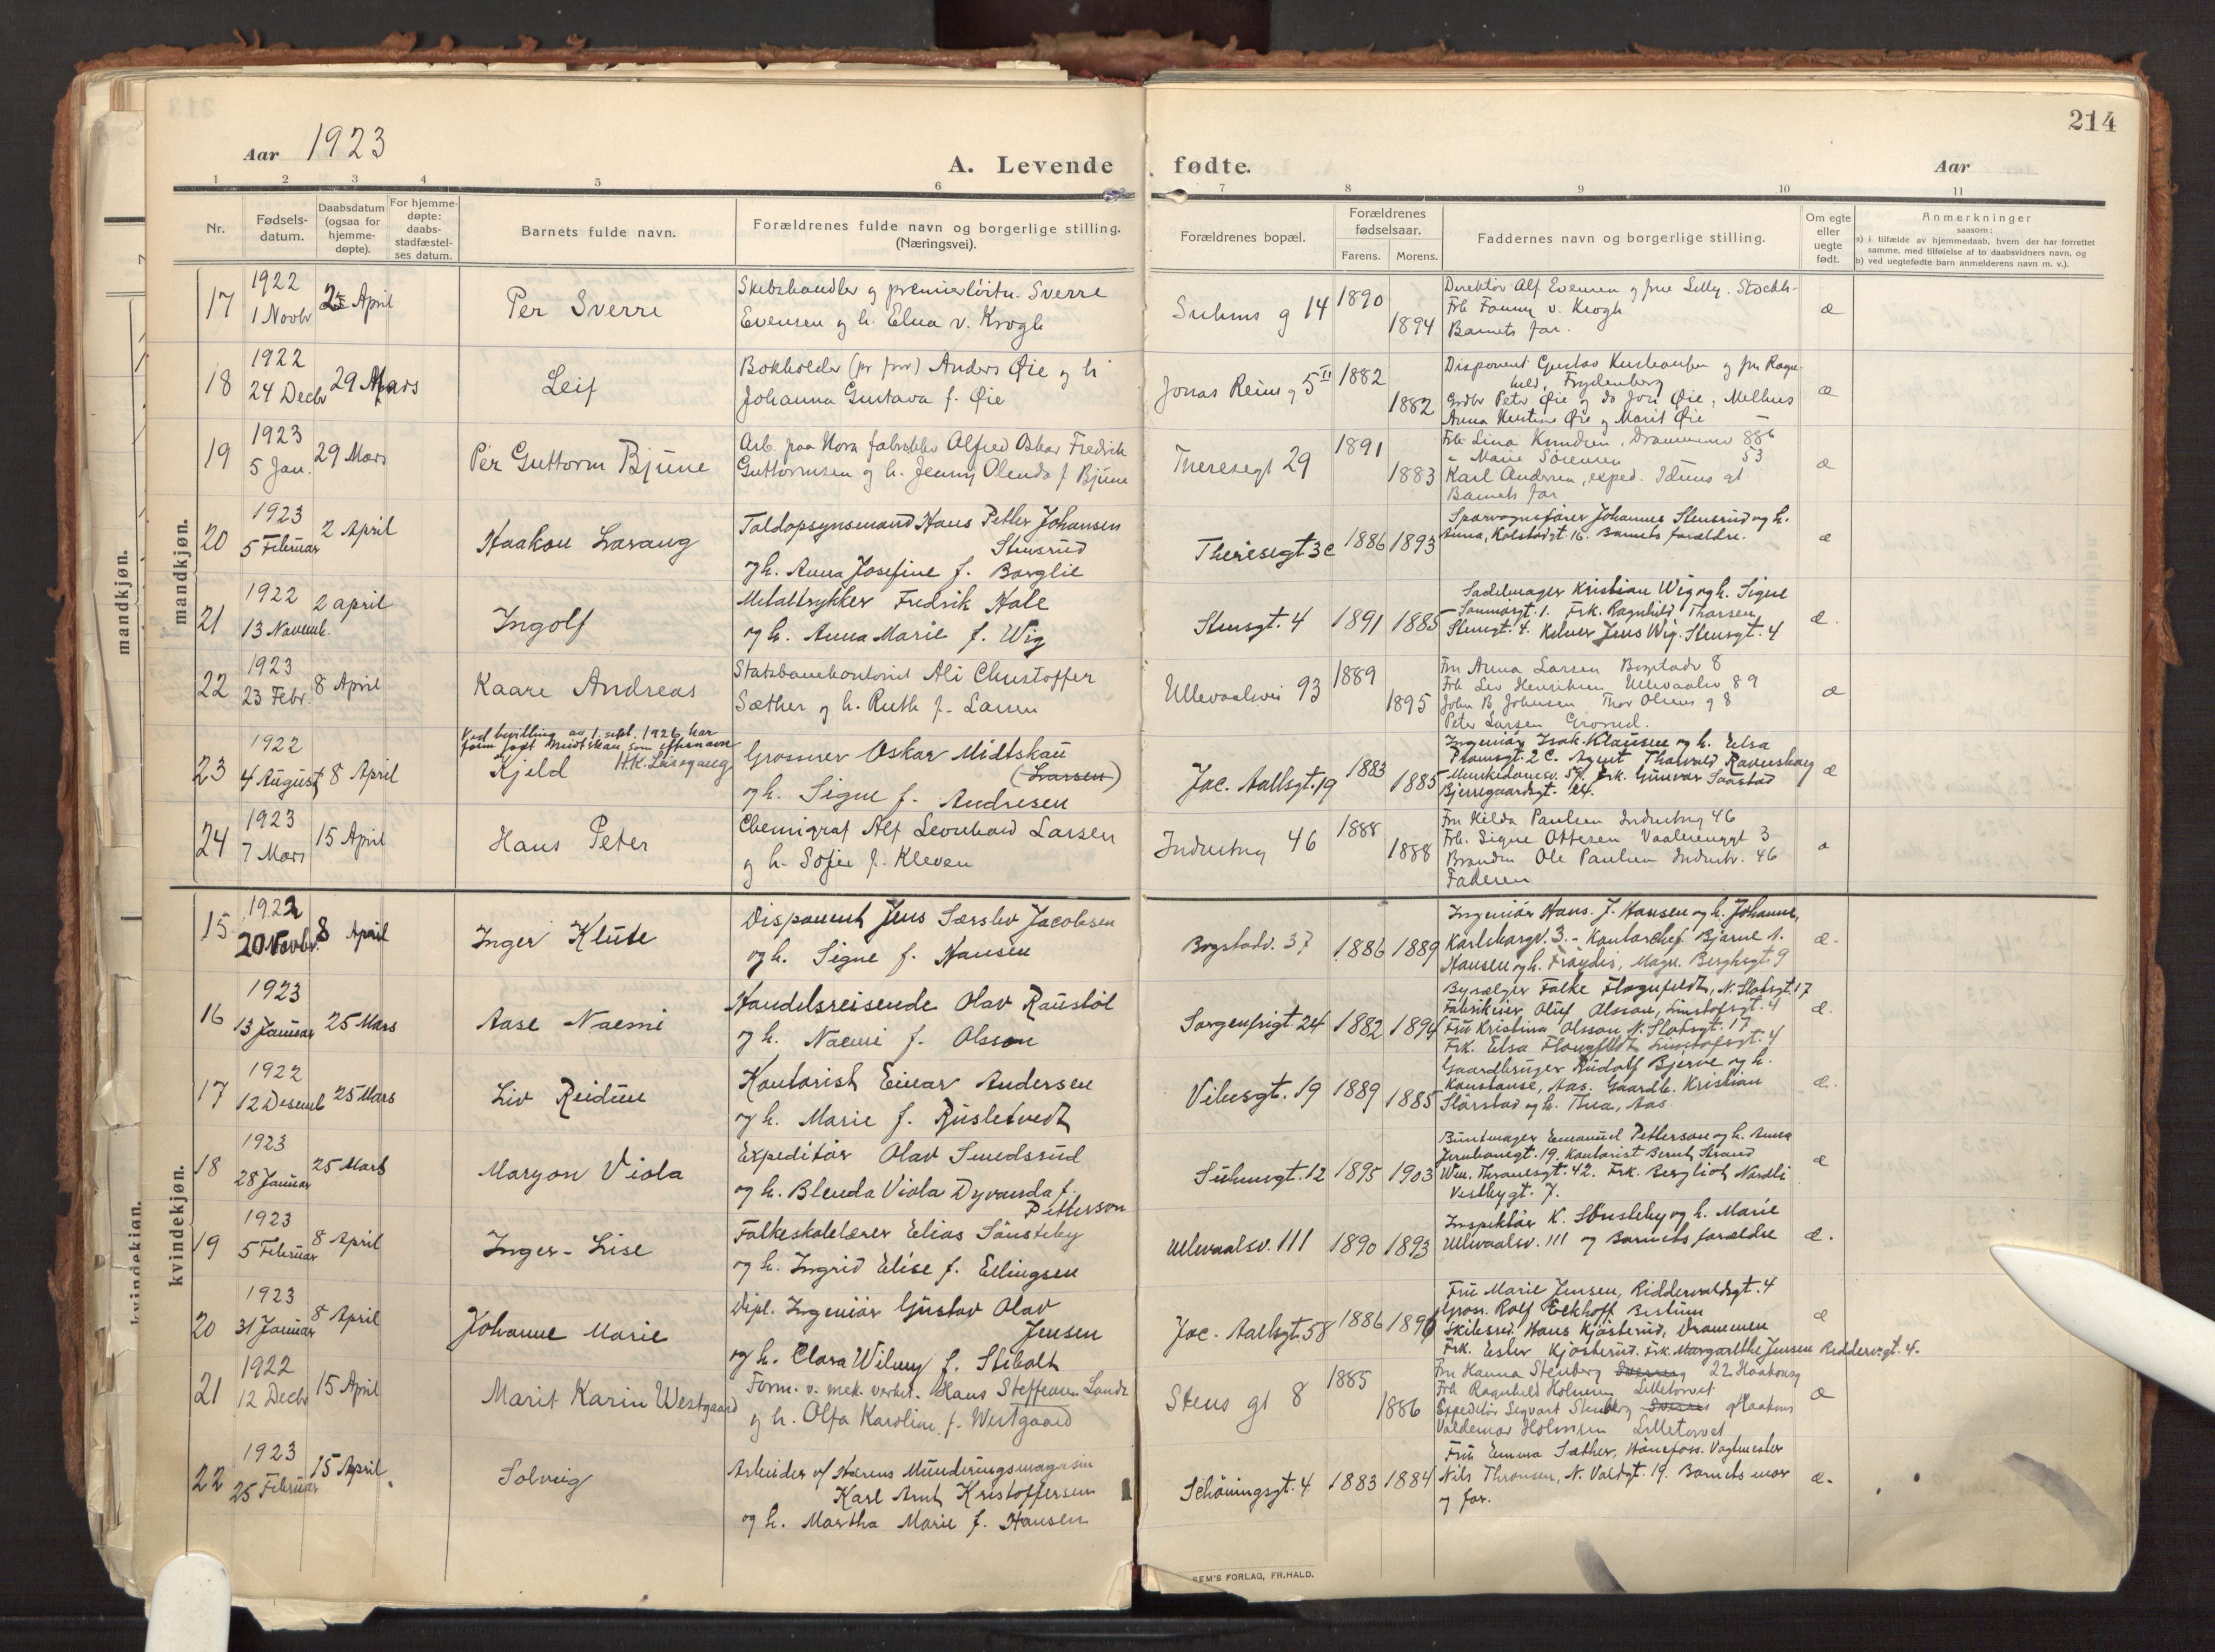 213
214
Aar 1923
A. Levende fødte.
Aar
1 2 3 4 5 6 7 8 9 10 11
Nr.
Fødsels-
datum.
Daabsdatum
(ogsaa for
hjemme-
døpte).
For hjemme-
døpte:
daabs-
stadfæstel-
ses datum.
Barnets fulde navn.
Forældrenes fulde navn og borgerlige stilling.
(Næringsvei).
Forældrenes bopæl.
Forældrenes
fødselsaar.
Farens. Morens.
Faddernes navn og borgerlige stilling.
Om egte
eller
uegte
født.
Anmerkninger
saasom:
a) i tilfælde av hjemmedaab, hvem der har forrettet
samme, med tilføielse af to daabsvidners navn, og
b) ved uegtefødte barn anmelderens navn m. v.).
mandkjøn.
mandkjøn.
17
1922
1 Novbr
2 April
Per Sverre
Skibshandler og premierløitn. Sverre
Evensen og h. Elna v. Krogh
Suhms g 14
1890
1894
Direktør Alf Evensen og frue Lilly. Stockh.
Frk Fanny v. Krogh
Barnets far.
æ
18
1922
24 Decbr
29 Mars
Leif
Bokholder (pr frv) Anders Øie og h
Johanna Gustava f. Øie
Jonas Reins g 5 II
1882
1882
Disponent Gustav og fru Ragn-
hild, Frydenberg
Grdbr Peter Øie og do Jon Øie, Melhus
Anna Kirstine Øie og Marit Øie
æ
19
1923
5 Jan.
29 Mars
Per Guttorm Bjune
Arb. paa Nora fabrikker Alfred Oskar Fredrik
Guttormsen og h. Jenny Olenda f Bjune
Theresegt 29
1891
1883
Frk. Lina Knudsen, Drammensv 88b
" Marie Sørensen 53
Karl Andersen, exped. Iduns gt
Barnets far
æ
20
1923
5 Februar
2 April
Haakon Lavang
Toldopsynsmand Hans Petter Johansen
Stensrud
og h. Anna Josefine f. Borglie
Theresegt 3c
1886 1893
Sporvognsfører Johannes Stensrud og h.
Anna, Kolstadgt. 16. Barnets forældre.
æ
21
1922
13 Novemb.
2 april
Ingolf
Metaltrykker Fredrik Hole
og h. Anna Marie f. Wig
Stensgt. 4
1891 1885
Sadelmager Kristian Wig og h. Signe
Sannergt. 1. Frk. Ragnhild Thorsen
Stensgt. 4. Kelner Jens Wig. Stensgt. 4
æ.
22
1923
23 Febr.
8 April
Kaare Andreas
Statsbanekontorist Ali Christoffer
Sæther og h. Ruth f. Larsen
Ullevaalsvei 93
1889
1895
Fru Anna Larsen Bogstadv 8
Frk Liv Henriksen Ullevaalsv 89
John B Johansen Thor Olsens g 8
Peter Larsen Grorud.
æ
23
1922
4 August
8 April
Ved bevilling av 1. sept. 1926 har
faren faat Midtskau som efternavn
H.K. Lasegang
Kjeld
Grosserer Oskar Midtskau
(Larsen)
og h. Signe f. Andresen
Jac. Aallsgt. 19
1883
1885
Ingeniør Isak Klausen og h. Elsa
Promsgt. 2 C. Agent Thorvald Ravenskog
Munkedamsv. 57. Frk. Gunvor Saastad
Bjerregaardsgt. 24.
æ
24
1923
7 Mars
15 April
Hans Peter
Chemigraf Alf Leonhard Larsen
og h. Sofie f. Kleven
Industrig 46
1888
1888
Fru Hilda Paulsen Industrig 46
Frk. Signe Ottesen Vaalerenggt 3
Brandm Ole Paulsen Industr. 46
Faderen
æ
kvindekjøn.
kvindekjøn.
15
1922
20 Novbr.
8 April
Inger Klute
Disponent Jens Særslev Jacobsen
og h. Signe f. Hansen
Bogstadv. 37
1886 1889
Ingeniør Hans. J. Hansen og h. Johanne,
Karlsborgv. 3. - Kontorchef Bjarne A.
Hansen og h. Frøydis, Magn. Berghsgt. 9
æ.
16
1923
13 Januar
25 Mars
Aase Naemi
Handelsreisende Olav Raustøl
og h. Naemi f. Olsson
Sorgenfrigt. 24
1882 1894
Bysælger Falke Flognfeldt, N. Slotsgt. 17
Fabrikeier Oluf Olsson, Linstofsgt. 4
Fru Kristina Olsson, N. Slotsgt. 17
Frk. Elsa Flognfeldt Linstofsgt. 4
æ.
17
1922
12 Desemb
25 Mars
Liv Reidun
Kontorist Einar Andersen
og h. Marie f. Rusletvedt
Vibesgt. 19
1889 1885
Gaardbruger Rudolf Bjerve og h.
Konstanse, Aas. Gaardb. Kristian
Slørstad og h. Thea, Aas
æ.
18
1923
28 Januar
25 Mars
Maryon Viola
Expeditør Olav Smedsrud
og h. Blenda Viola Dyvanda f.
Petterson
Suhmsgt. 12
1895 1903
Buntmager Emanuel Petterson og h. Anna
Jernbanegt. 19. Kontorist Bernt Strand
Wm. Thranesgt. 42. Frk. Bergliot Nordli
Vestbygt. 7.
æ
19
1923
5 Februar
8 April
Inger-Lise
Folkeskolelærer Elias Sønsteby
og h. Ingrid Elise f. Ellingsen
Ullevaalsv. 111
1890 1893
Inspektør K. Sønsteby og h. Marie
Ullevaalsv. 111 og Barnets forældre
æ.
20
1923
31 Januar
8 April
Johanne Marie
Dipl. Ingeniør Gustav Olav
Jensen
og h. Clara Wilmy f. Stibolt
Jac. Aallsgt. 58
1886 1890
Fru Marie Jensen, Riddervoldsgt. 4
Gross. Rolf Eckhoff Bestum
Skibsred. Hans Kjøsterud, Drammen
Frk. Ester Kjøsterud. Frk. Margarethe Jensen Riddervgt. 4.
æ
21
1922
12 Decbr
15 April
Marit Karin Westgaard
Form. v. mek. verkst. Hans Steffensen Lande
og h. Olfa Karoline f. Westgaard
Stens gt 8
1885
1886
Fru Hanna Stenberg Sverres g 22 Haakonsg
Frk Ragnhild Holmsen Lilletorvet
Expeditør Sigvart Stenberg Sverres g Haakons
Valdemar Holmsen Lilletorvet
æ
22
1923
25 Februar
15 April.
Solveig
Arbeider v/ Hærens Munderingsmagasin
Karl Arnt Kristoffersen
og h. Martha Marie f. Hansen
Schøningsgt. 4
1883 1884
Fru Emma Sæther, Hønefoss. Vagtmester
Nils Thronsen, N. Voldgt. 19. Barnets mor
og far.
æ.
SEM'S FORLAG, FR.HALD.